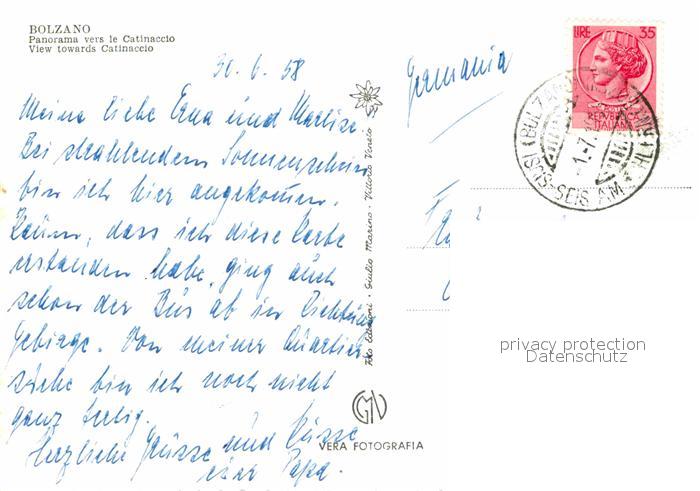 BOLZANO
Panorama vers le Catinaccio
View towards Catinaccio
30.6.58
Meine liebe Erna und Marlise.
Bei strahlendem Sonnenschein
bin ich hier angekommen.
Kaum, dass ich diese Karte
erstanden habe, ging auch
schon der Bus ab in Richtung
Gebirge. Von meiner Quartier-
suche bin ich noch nicht
ganz fertig.
Herzliche Grüsse und Küsse
euer Papa.
Foto Edizioni · Giulio Marino · Vittorio Veneto
VERA FOTOGRAFIA
Germania
LIRE 35
REPVBBLICA
ITALIANA
(BOLZANO)
SIUSI-SEIS AM
privacy protection
Datenschutz